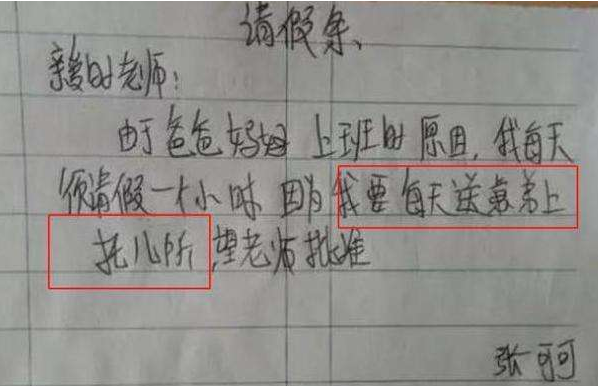 请假条、
亲爱的老师:
由于爸爸妈妈上班的原因,我每天
须请假一个小时因为我要每天送弟弟上
托儿所,望老师批准
张可可